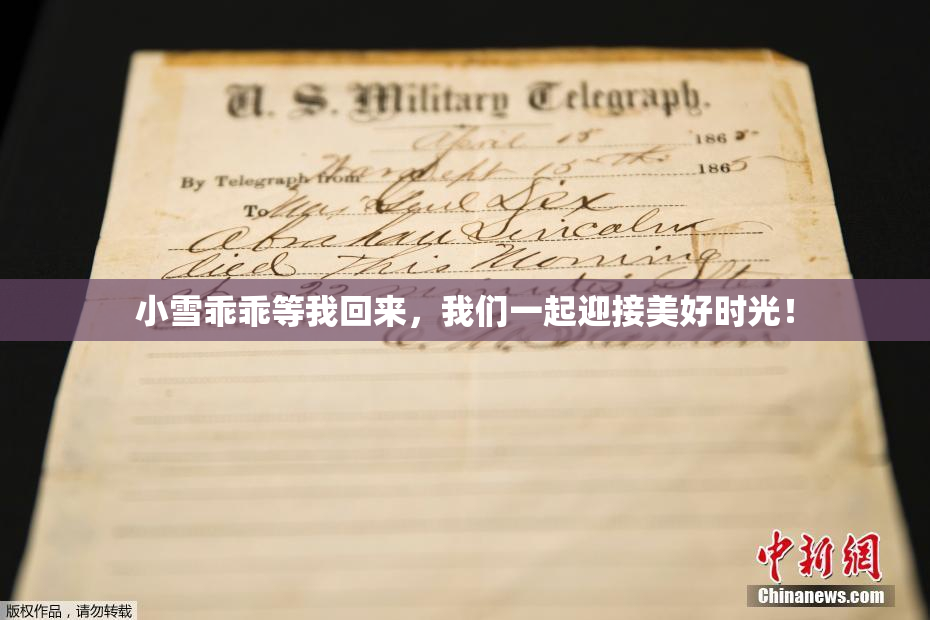 U. S. Military Telegraph.
April 15 1865
By Telegraph from War Dept 15th 1865
To Maj Genl Dix
Abraham Lincoln
died This Morning
22 minutes after
小雪乖乖等我回来，我们一起迎接美好时光！
E. M. Stanton
中新网
Chinanews.com
版权作品，请勿转载